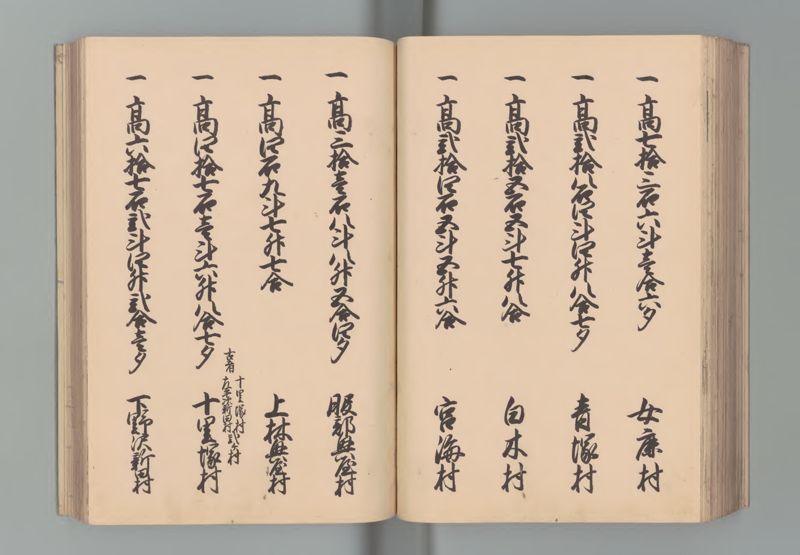 一 高七拾三石六斗壱合六夕 女鹿村
一 高弐拾八石四斗四升八合七夕 青塚村
一 高弐拾五石五斗七升八合 白木村
一 高弐拾四石五斗五升六合 宮海村
一 高三拾壱石八斗八升五合四夕 服部興屋村
一 高四石九斗七升七合 上林興屋村
一 高四拾七石壱斗六升八合七夕 十里塚村
古者
十里塚村
新田村弐ヶ村
一 高六拾七石弐斗四升弐合壱夕 下野沢新田村